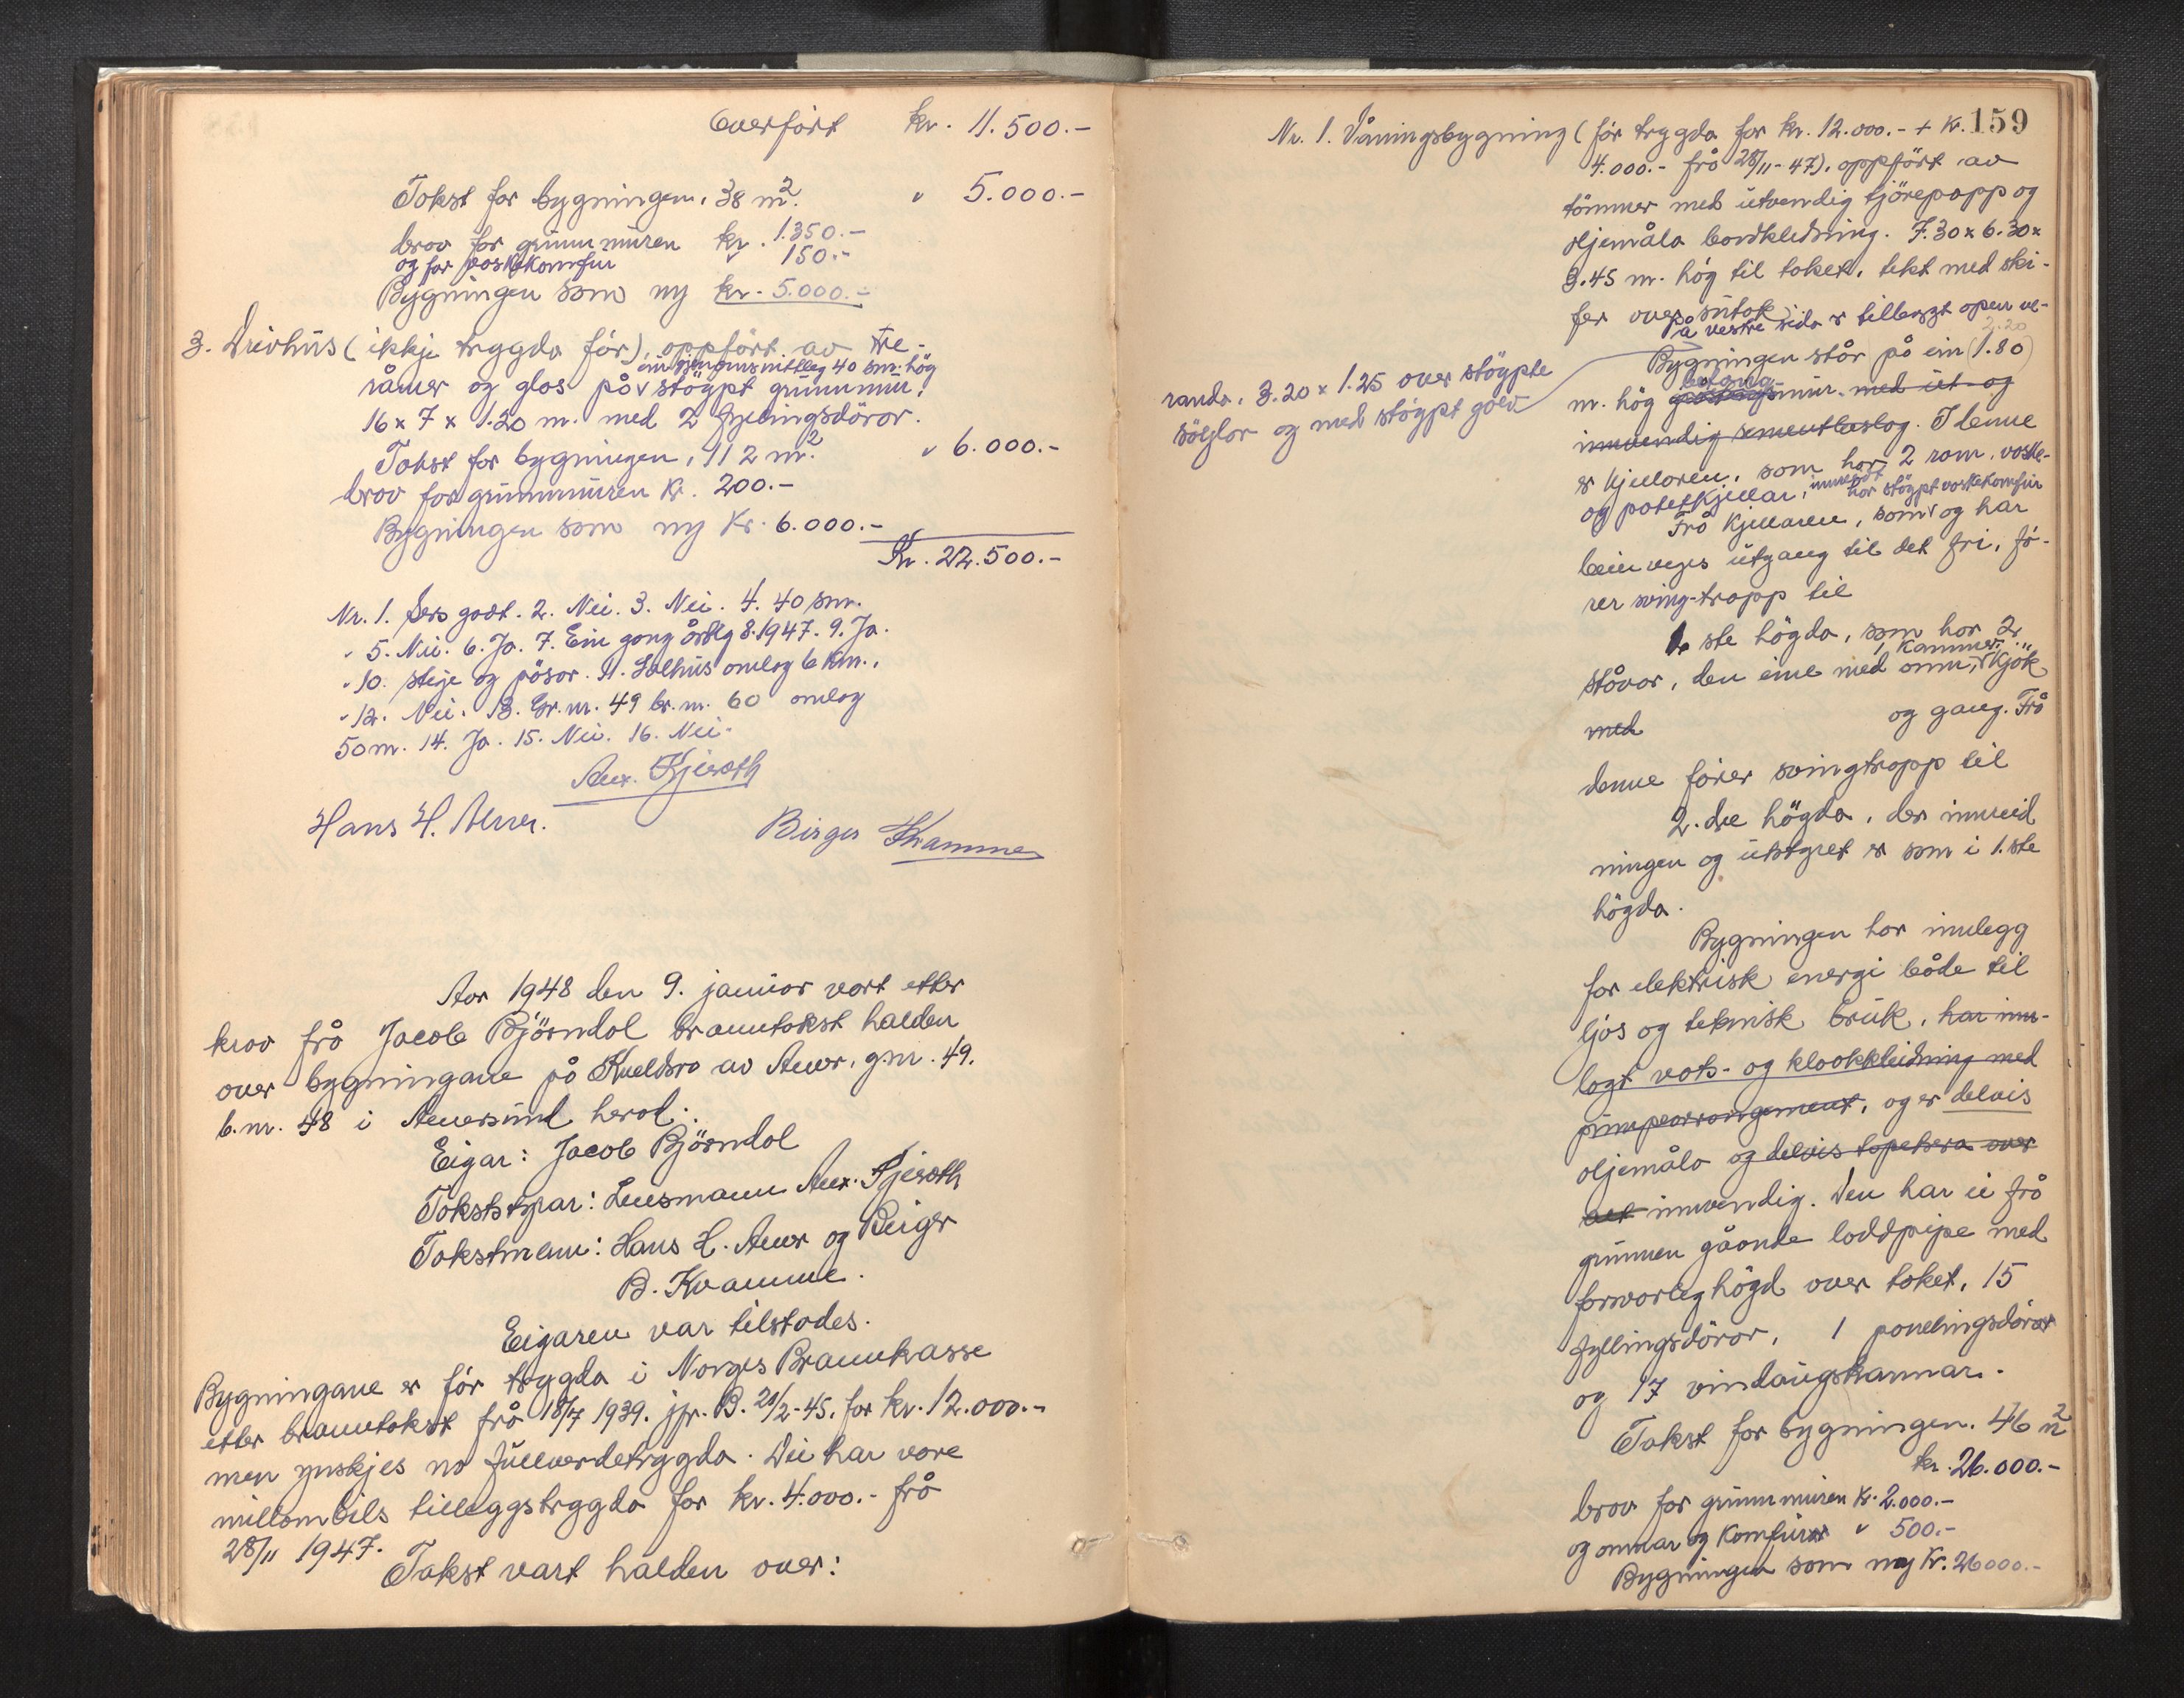 Overført kr. 11.500.-
Takst for bygningen, 38 m². " 5.000.-
brav for grunnmuren kr. 1.350.-
og for vaskekomfur " 150.-
Bygningen som ny kr. 5.000.-
3. Drivhus (ikkje trygda før), oppført av tre-
råmer og glas på ein gjenomsnittleg 40 sm. høg støypt grunnmur,
16 x 7 x 1.20 m. med 2 fyllingsdörar.
Takst for bygningen, 112 m². " 6.000.-
brav for grunnmuren kr. 200.-
Bygningen som ny Kr. 6.000.-
Kr. 22.500.-
Nr. 1. Sers godt. 2. Nei. 3. Nei. 4. 40 sm.
" 5. Nei. 6. Ja. 7. Ein gong årleg 8. 1947. 9. Ja.
" 10. Stige og pøsar. 11. Salhus omlag 6 km.,
" 12. Nei. 13. Gr. nr. 49 br. nr. 60 omlag
50 m. 14. Ja. 15. Nei. 16. Nei.
Alex. Kjeseth
Hans H. Alver. Birger Kvamme
Aar 1948 den 9. januar vart etter
krav frå Jacob Bjørndal branntakst halden
over bygningane på Kveldsro av Alver, g.nr. 49.
b.nr. 48 i Alversund herad.
Eigar: Jacob Bjørndal
Takststyrar: Lensmann Alex. Kjeseth
Takstmenn: Hans H. Alver og Birger
B. Kvamme.
Eigaren var tilstades.
Bygningane er før trygda i Norges Brannkasse
etter branntakst frå 18/7 1939. jfr. B. 21/2-45, for kr. 12.000.-
men ynskjes no fullverdetrygda. Dei har vore
millombils tilleggstrygda for kr. 4.000.- frå
28/11 1947.
Takst vart halden over:
159
Nr. 1. Våningsbygning (før trygda for kr. 12.000.- + kr.
4.000.- frå 28/11-47), oppført av
tömmer med utvendig tjörepapp og
oljemåla bordkledning. 7.30 x 6.30 x
3.45 m. høg til taket, tekt med ski-
fer over sutak.
På vestre sida er tilbygt open ve-
randa, 3.20 x 1.25 over støypte
söylor og med støypt golv
Bygningen står på ein (1.80) 2.20
m. høg betong- mur. med ut- og
innvendig sementbeslag. I denne
er kjellaren, som har 2 rom, vaske-
og potetkjellar, innreidt
har støypt vaskekomfur
Frå kjellaren, som og har
beinveges utgang til det fri, fø-
rer sving-trapp til
1. ste högda, som har 2
stövor, den eine med omn, 1 kammer, kjøk
med og gang. Frå
denne fører svingtrapp til
2. dre högda, der innreid
ningen og utstyret er som i 1. ste
högda.
Bygningen har innlegg
for elektrisk energi både til
ljos og teknisk bruk, har inn-
lagt vats- og kloakkleidning med
pumpearrangement, og er delvis
oljemåla og delvis tapetsera over
alt innvendig. Den har ei frå
grunnen gåande loddpipe med
forsvarleg högd over taket, 15
fyllingsdörar, 1 panelingsdörar
og 17 vindaugskarmar.
Takst for bygningen. 46 m²
kr. 26.000.-
brav for grunnmuren Kr. 2.000.-
og omnar og komfurar " 500.-
Bygningen som ny Kr. 26000.-